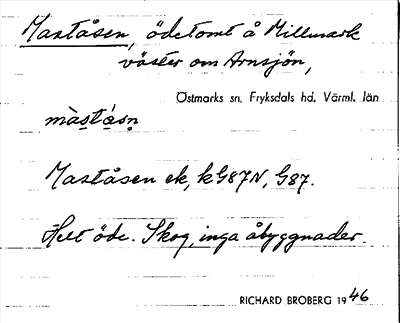 Maståsen, ödetomt å Millmark
väster om Arnsjön,
Östmarks sn, Fryksdals hd, Värml. län
màstásn
Maståsen ek, kG87N, G87.
Helt öde. Skog, inga åbyggnader.
RICHARD BROBERG 1946